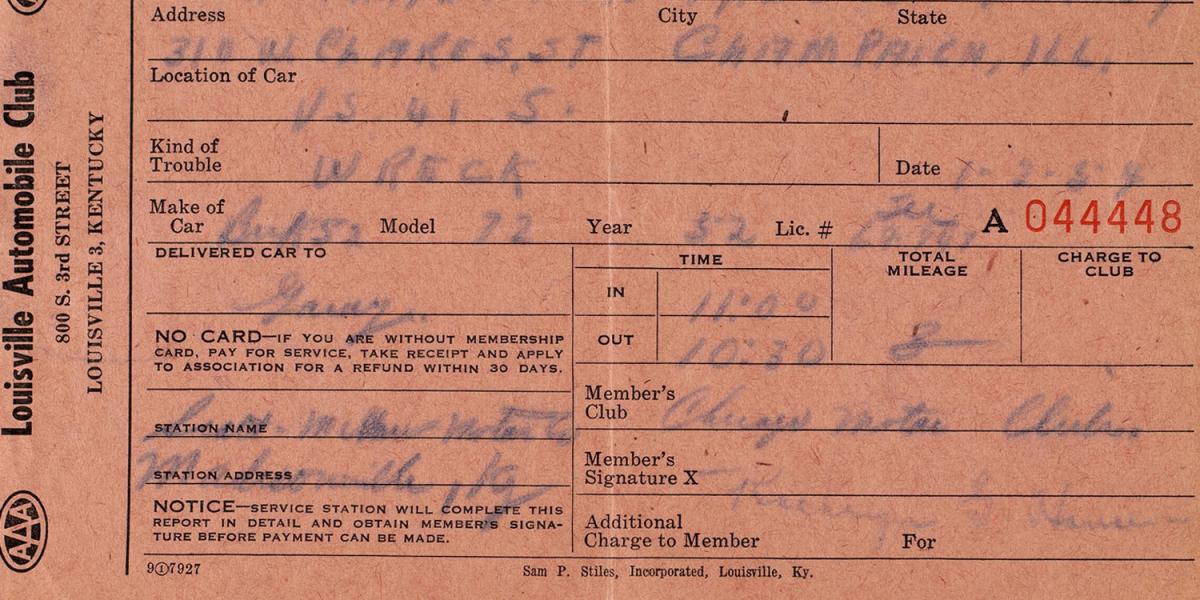 Louisville Automobile Club
800 S. 3rd STREET
LOUISVILLE 3, KENTUCKY
AAA
Address City State
310 W ST CHAMPAIGN, ILL.
Location of Car
US 41 S.
Kind of Trouble WRECK Date 1-2-54
Make of Car Model 72 Year 52 Lic. # Ill A 044448
DELIVERED CAR TO
TIME
TOTAL MILEAGE
CHARGE TO CLUB
IN 11:00
OUT 10:30
8
NO CARD—IF YOU ARE WITHOUT MEMBERSHIP
CARD, PAY FOR SERVICE, TAKE RECEIPT AND APPLY
TO ASSOCIATION FOR A REFUND WITHIN 30 DAYS.
Member's Club Chicago Motor Club.
STATION NAME Motor Co
STATION ADDRESS Madisonville, Ky
Member's Signature X
NOTICE—SERVICE STATION WILL COMPLETE THIS
REPORT IN DETAIL AND OBTAIN MEMBER'S SIGNA-
TURE BEFORE PAYMENT CAN BE MADE.
Additional Charge to Member For
9①7927
Sam P. Stiles, Incorporated, Louisville, Ky.